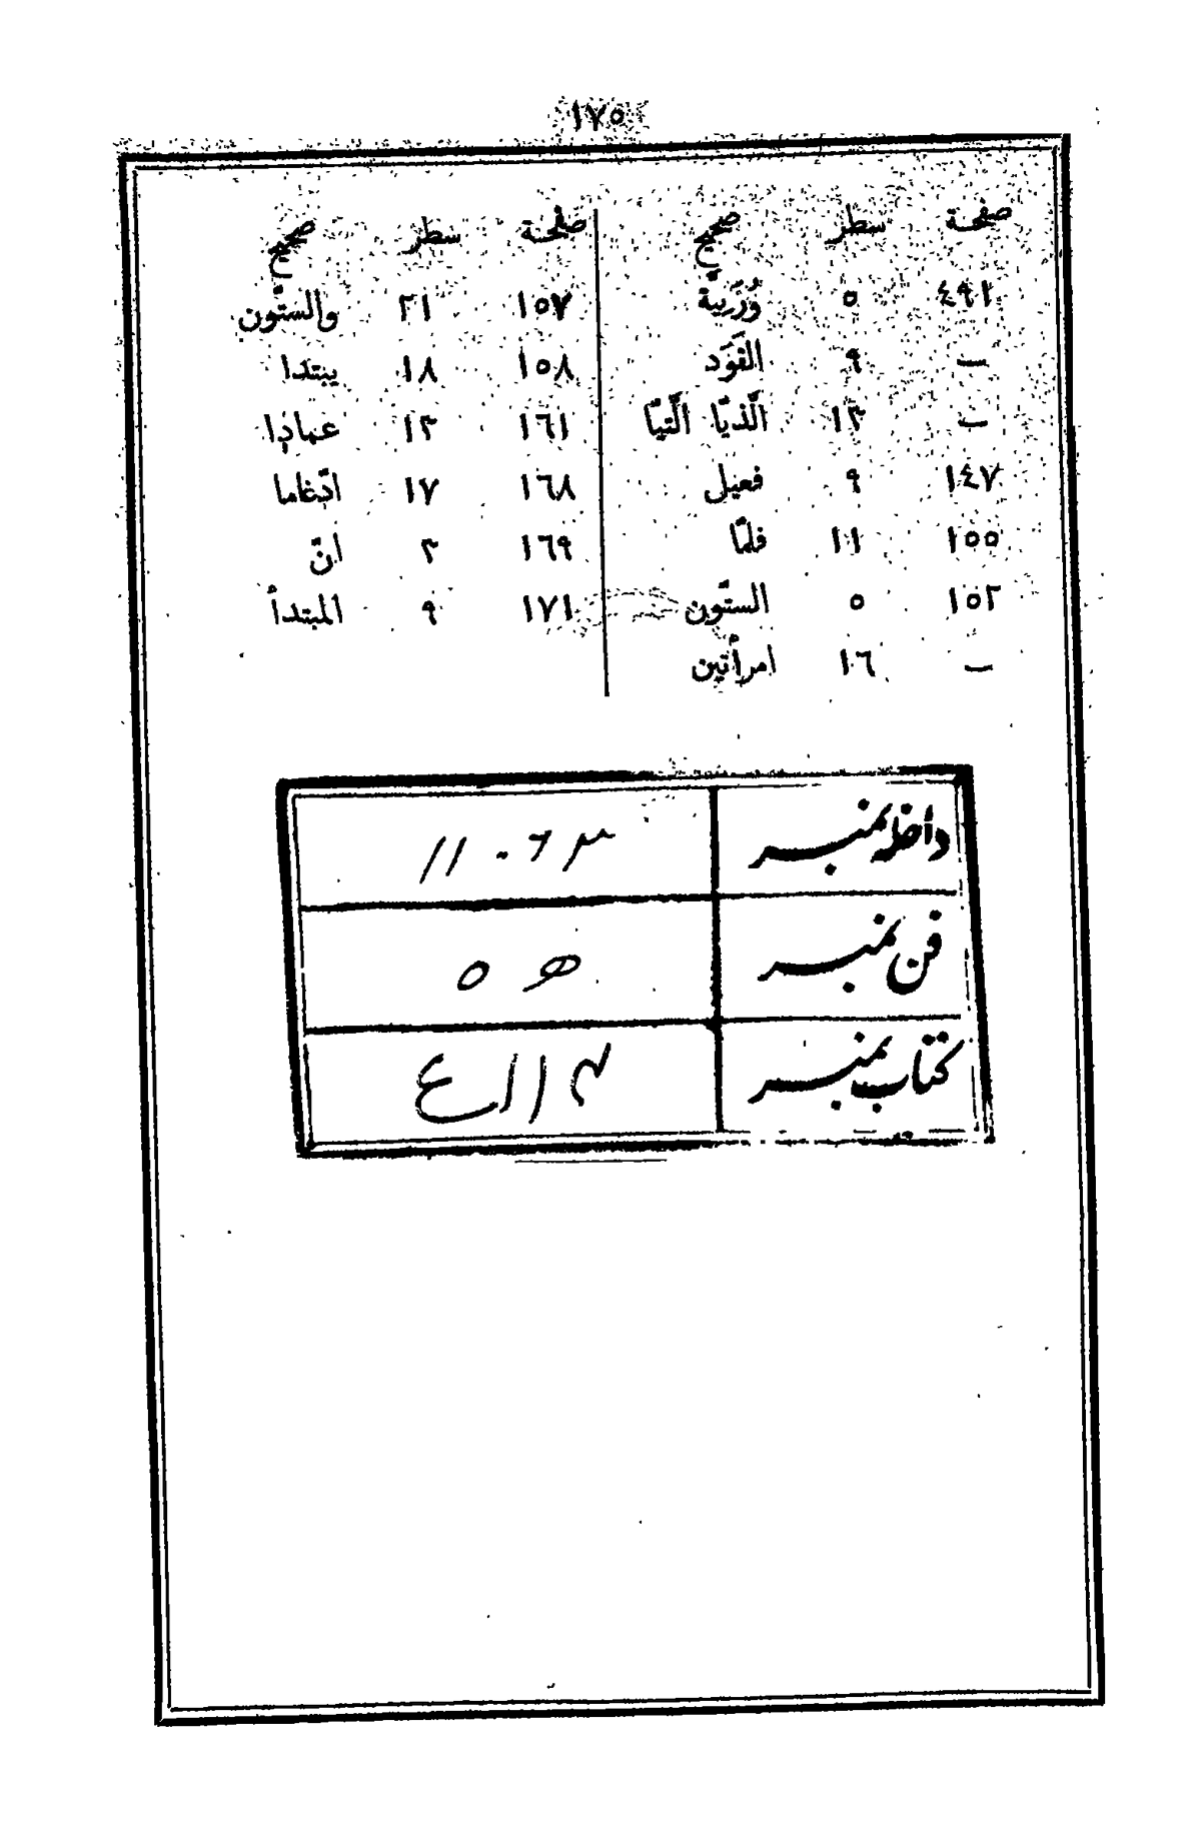 ١٧٥
صفحة سطر صحيح
٤٩١ ٥ وُزَرِيَّة
— ٩ القَوَد
— ١٣ الّذيّا الّتيّا
١٤٧ ٩ فعيل
١٥٥ ١١ فلمّا
١٥٢ ٥ الستّون
— ١٦ امرأتين
صفحة سطر صحيح
١٥٧ ٢١ والستّون
١٥٨ ١٨ يبتدا
١٦١ ١٣ عمادا
١٦٨ ١٧ ادّغاما
١٦٩ ٣ انّ
١٧١ ٩ المبتدأ
داخلہ نمبر ١١٠٦٣
فن نمبر
کتاب نمبر